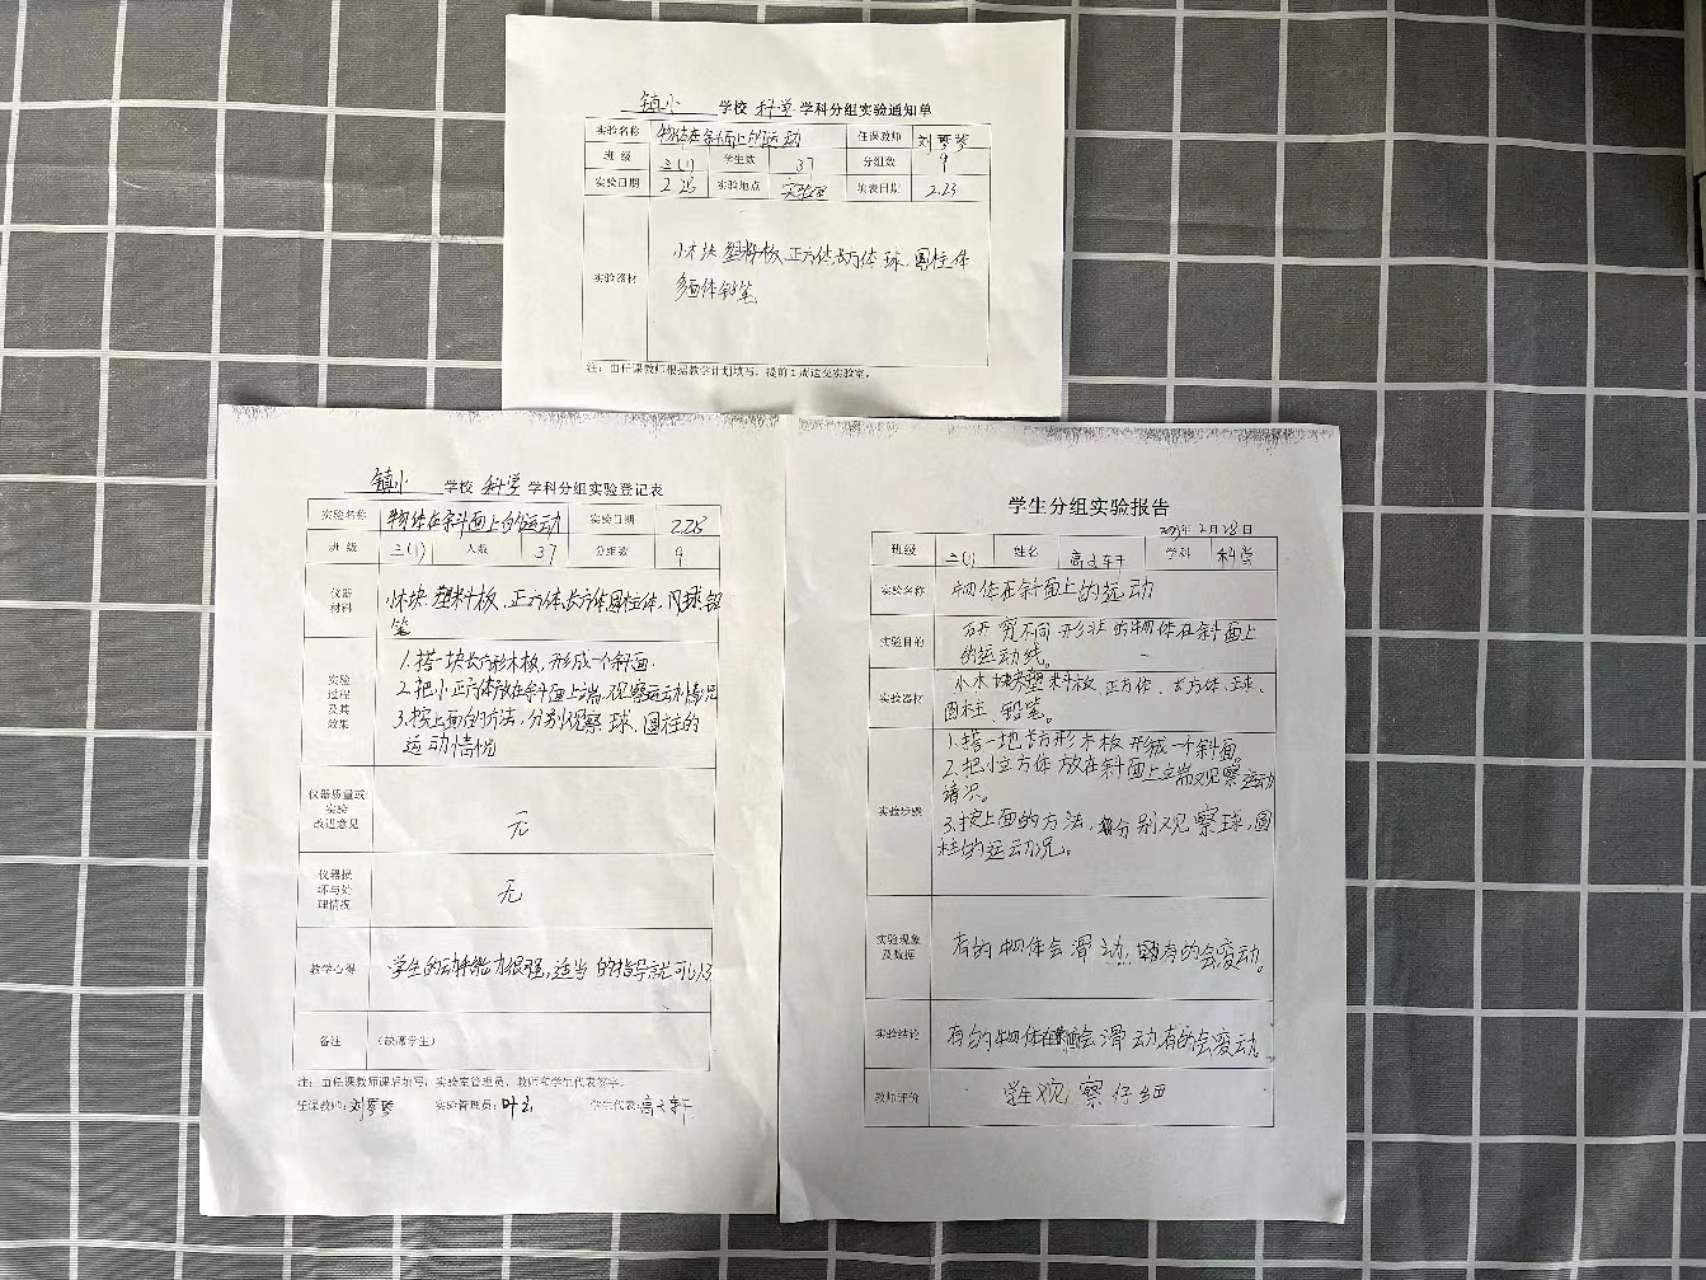 镇小 学校 科学 学科分组实验通知单
实验名称 物体在斜面上的运动 任课教师 刘琴琴
班 级 三(1) 学生数 37 分组数 9
实验日期 2.28 实验地点 实验室 填表日期 2.23
实验器材 小木块 塑料板 正方体 长方体 球、圆柱体
多面体 铅笔
注：由任课教师根据教学计划填写，提前1周送交实验室。
镇小 学校 科学 学科分组实验登记表
实验名称 物体在斜面上的运动 实验日期 2.28
班 级 三(1) 人数 37 分组数 9
仪器材料 小木块、塑料板、正方体、长方体圆柱体、 球 铅
笔
实验过程及其效果 1.搭一块长方形木板，形成一个斜面.
2.把小正方体放在斜面上端，观察运动情况
3.按上面的方法，分别观察球、圆柱的
运动情况
仪器质量或实验改进意见 无
仪器损坏与处理情况 无
教学心得 学生的动手能力很强，适当的指导就可以了
备注 (缺席学生)
注：由任课教师课后填写，实验室管理员、教师和学生代表签字。
任课教师：刘琴琴 实验管理员：叶 学生代表：高文轩
学生分组实验报告
2023年2月28日
班级 三(1) 姓名 高文轩 学科 科学
实验名称 物体在斜面上的运动
实验目的 研究不同形状的物体在斜面上
的运动
实验器材 小木块塑料板、正方体、长方体、球、
圆柱、铅笔。
实验步骤 1.搭一地长方形木板形成一个斜面。
2.把小立方体放在斜面上端观察运动
情况。
3.按上面的方法，分别观察球，圆
柱的运动况。
实验现象及数据 有的物体会滑动，有的会变动。
实验结论 有的物体在 会滑动有的会变动。
教师评价 学生观察仔细